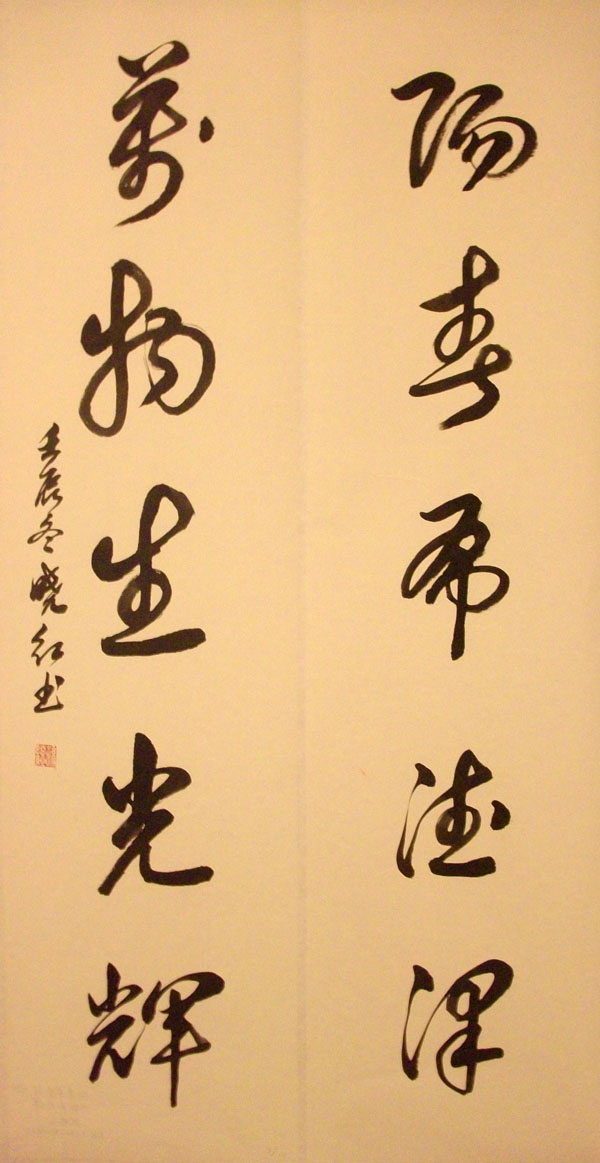 陽春布德澤
萬物生光輝
壬辰冬曉紅书